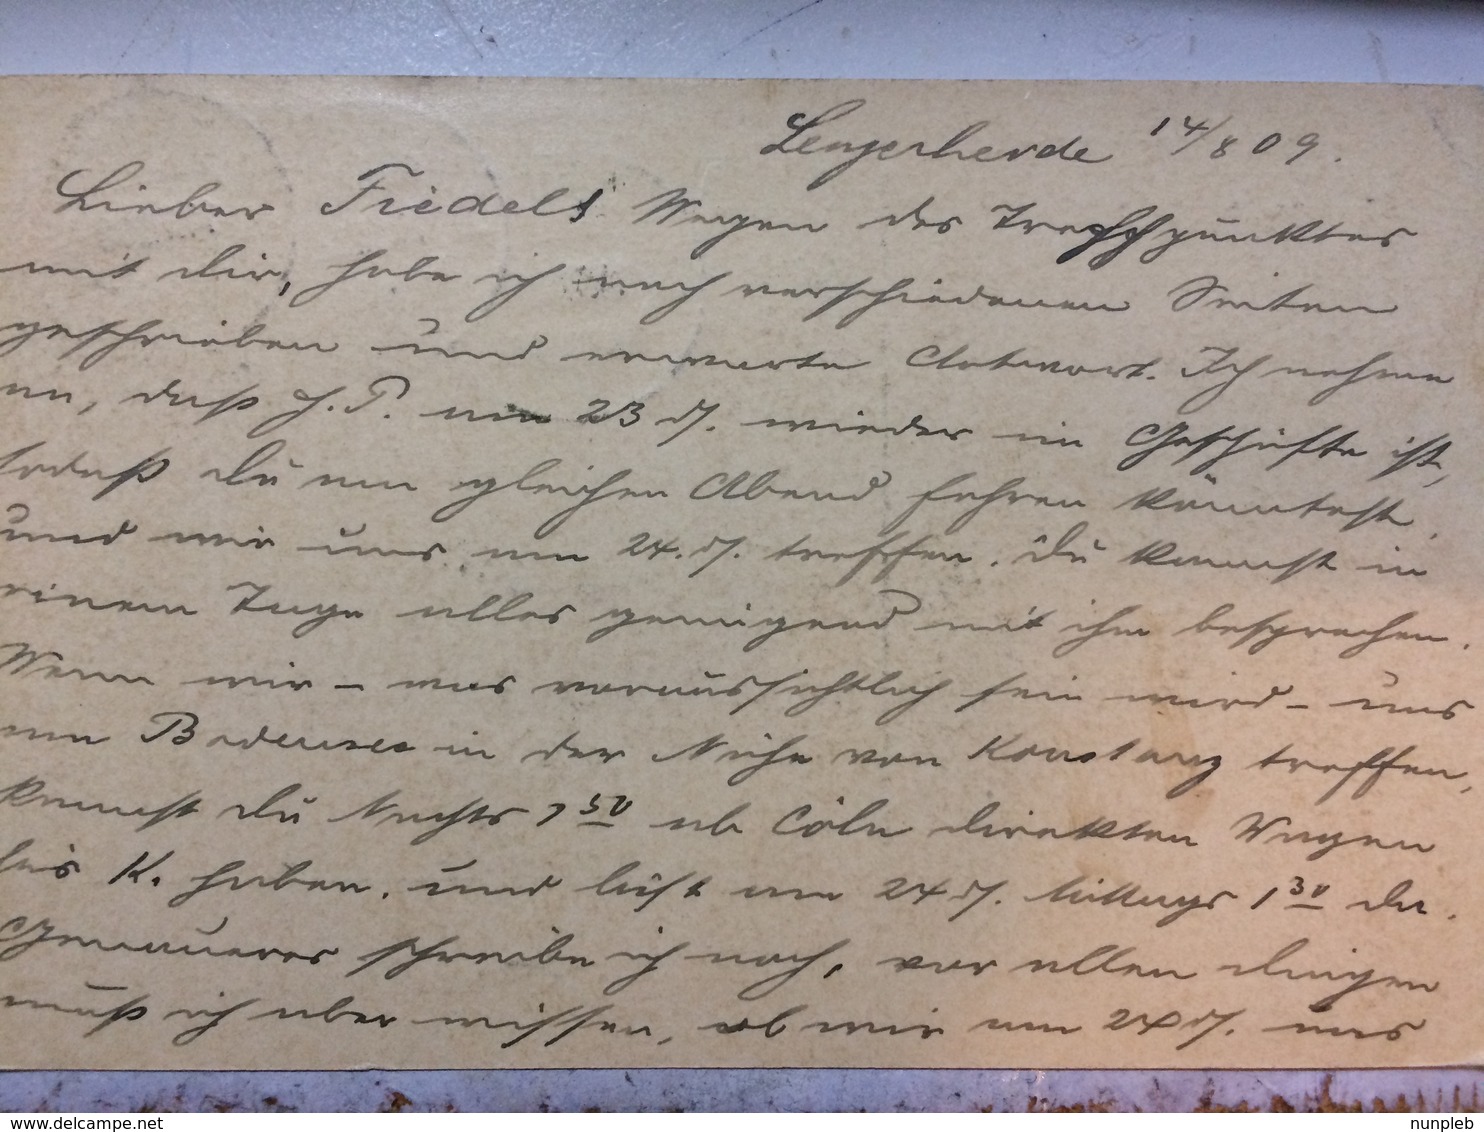 Lengerherde 14/8 09.
Lieber Friedel! Wegen des Treffpunktes
mit dir, habe ich nach verschiedenen Seiten
geschrieben und erwarte Antwort. Ich nehme
an, daß H. P. am 23 d/. wieder im Geschäfte ist,
sodaß du am gleichen Abend fahren könntest,
und wir uns am 24. d/. treffen. Du kannst in
einem Tage alles genügend mit ihm besprechen.
Wenn wir – was voraussichtlich sein wird – uns
am Bodensee in der Nähe von Konstanz treffen,
kannst du Nachts 1 50 ab Cöln direkten Wagen
bis K. haben. und bist am 24 d/. Mittags 1 30 da.
Genaueres schreibe ich noch, vor allen dingen
muß ich aber wissen, ob wir am 24 d/. uns
www.delcampe.net
nunpleb